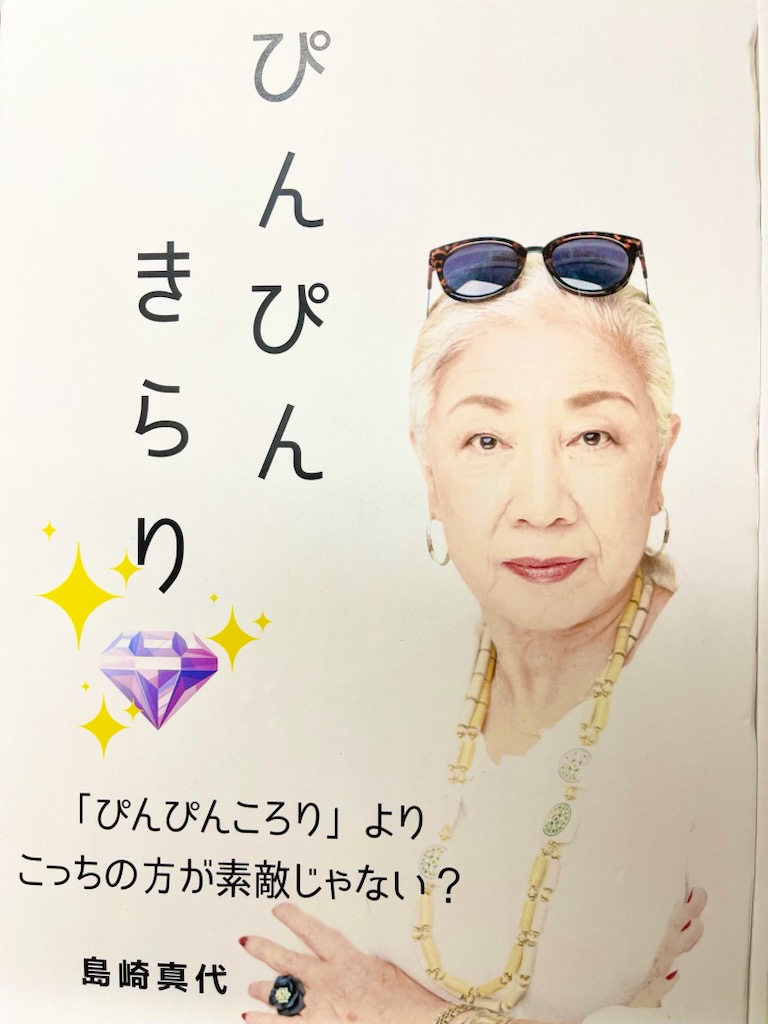 ぴんぴん
きらり
「ぴんぴんころり」より
こっちの方が素敵じゃない？
島崎真代